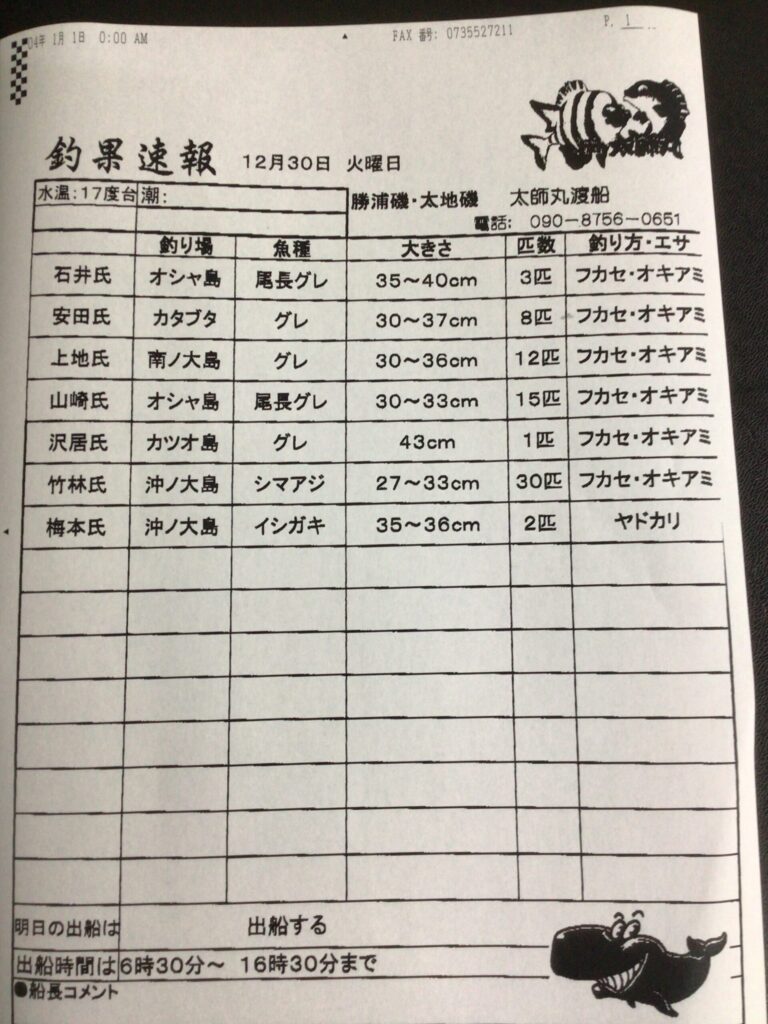 04年 1月 1日 0:00 AM FAX 番号: 0735527211 P. 1
釣果速報 12月30日 火曜日
水温:17度台 潮: 勝浦磯・太地磯 太師丸渡船
電話: 090-8756-0651
釣り場 魚種 大きさ 匹数 釣り方・エサ
石井氏 オシャ島 尾長グレ 35～40cm 3匹 フカセ・オキアミ
安田氏 カタブタ グレ 30～37cm 8匹 フカセ・オキアミ
上地氏 南ノ大島 グレ 30～36cm 12匹 フカセ・オキアミ
山崎氏 オシャ島 尾長グレ 30～33cm 15匹 フカセ・オキアミ
沢居氏 カツオ島 グレ 43cm 1匹 フカセ・オキアミ
竹林氏 沖ノ大島 シマアジ 27～33cm 30匹 フカセ・オキアミ
梅本氏 沖ノ大島 イシガキ 35～36cm 2匹 ヤドカリ
明日の出船は 出船する
出船時間は 6時30分～ 16時30分まで
●船長コメント